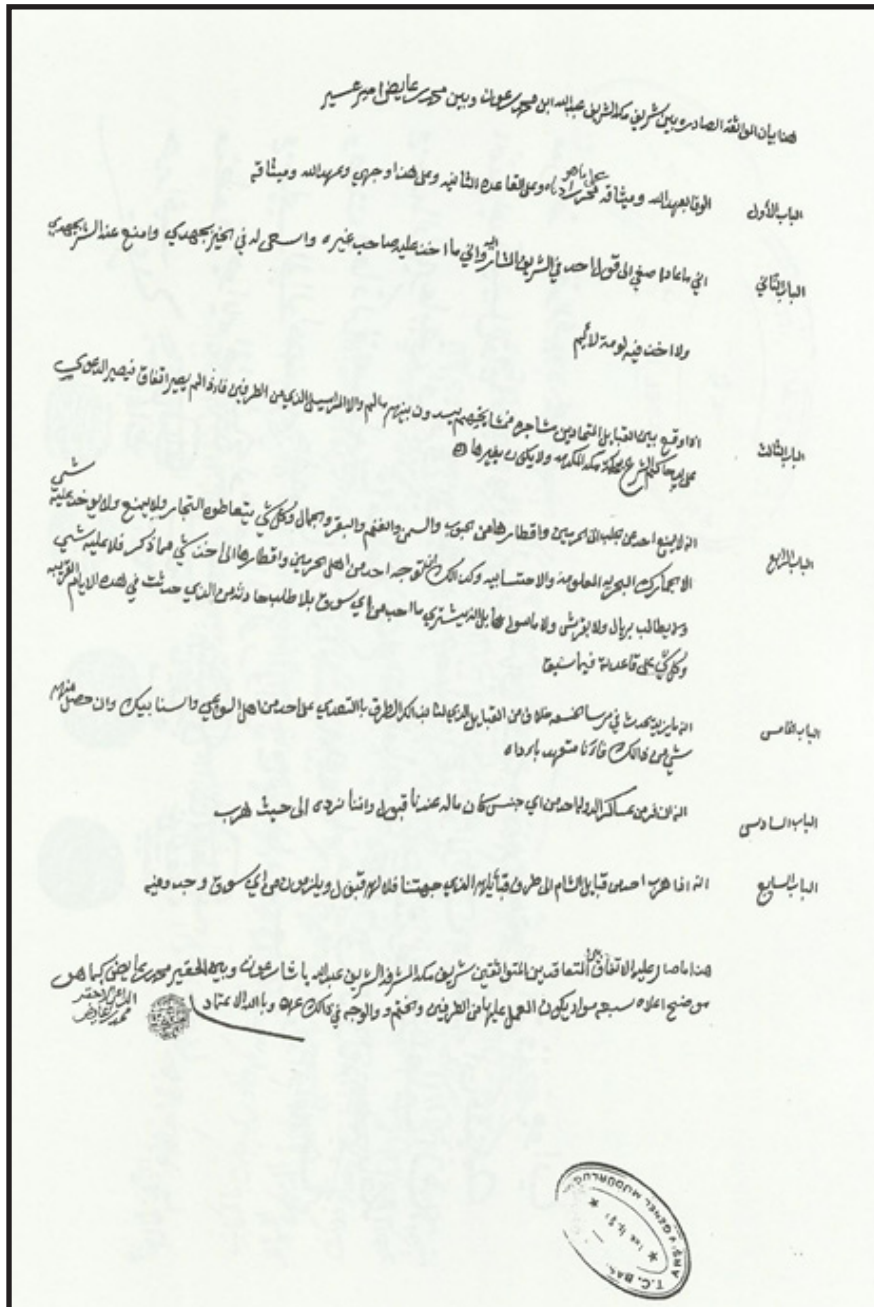 هذا بيان الواثقة الصادره بين شريف مكه الشريف عبدالله ابن محمد عون وبين محمد بن عايض امير عسير
الباب الأول الوفا بعهد الله وميثاقه وعلى القاعده الثانيه وعلى هذا وجهي وعهد الله وميثاقه
الباب الثاني اني ماعاد اصغي الى قول احد في الشريف المشار اليه واني ما اخذ عليه صاحب غيره واسعى له في الخير بجهدي وامنع عنه الشر بجهدي
ولا اخذ فيه لومة لائم
الباب الثالث اذا وقع بين القبايل المتحادين مشاجره يسدون بينهم مالهم والا الذي من الطرفين فاذا لم يصير اتفاق فيصير الدعوى
على يد حاكم الشرع بمحكمة مكه المكرمه ولا يكون بغيرها
الباب الرابع انه لا يمنع احد من جلب الى الحرمين واقطارها من الحبوب والسمن والغنم والبقر والجمال وكل شي يتعاطون التجار ولا يمنع ولا يوخذ عليه شي
الا الجمارك البحريه المعلومة والاحتسابيه وكذالك اذا توجه احد من اهل الحرمين واقطارها الى اخذ شي مما ذكر فلا عليه شي
يطالب بريال ولا بقرش ولا يشتري ما احب من اي سوق بلا طلب الذي حدثت في هذه الايام القريبه
وكل شي على قاعدته فيما سبق
الباب الخامس انه يحدث في مرسا خلاف من القبايل الذي الطرق بالتعدي على احد من اهل والسنابيك وان حصل منهم
شي من ذالك فانا متعهد
الباب السادس انه ان فر من عساكر الدوله احد من اي جنس كان ماله عندنا قبول واننا نرده الى حيث هرب
الباب السابع انه اذا هرب احد من قبايل الشام الى طرف قبايلهم الذي جهتنا فلا لهم قبول ويلزمون من اي سوق وجد وفيه
هذا ما صار عليه الاتفاق بين المتعاقدين المتواثقين شريف مكه المشرفه الشريف عبدالله باشا بن عون وبين الحقير محمد بن عايض كما هو
موضح اعلاه سبعه مواد يكون العمل عليها من الطرفين والختم والوجه في ذالك عهد وبالله الاعتماد
محمد بن عايض
T.C. BAŞ.
GENEL MÜDÜRLÜĞÜ